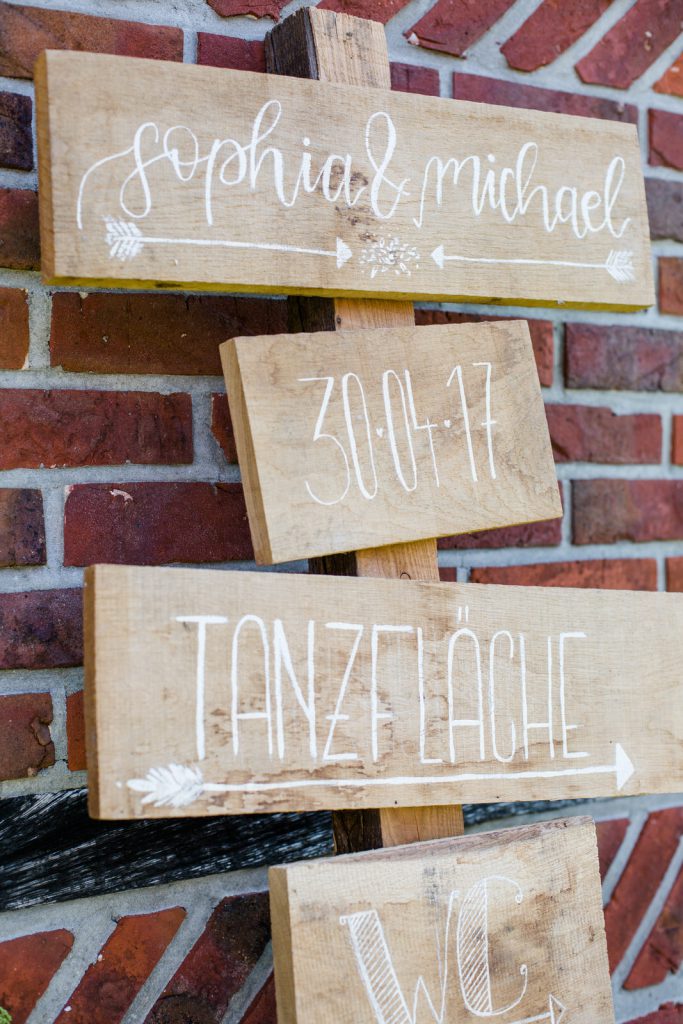 sophia & michael
30.04.17
TANZFLÄCHE
WC